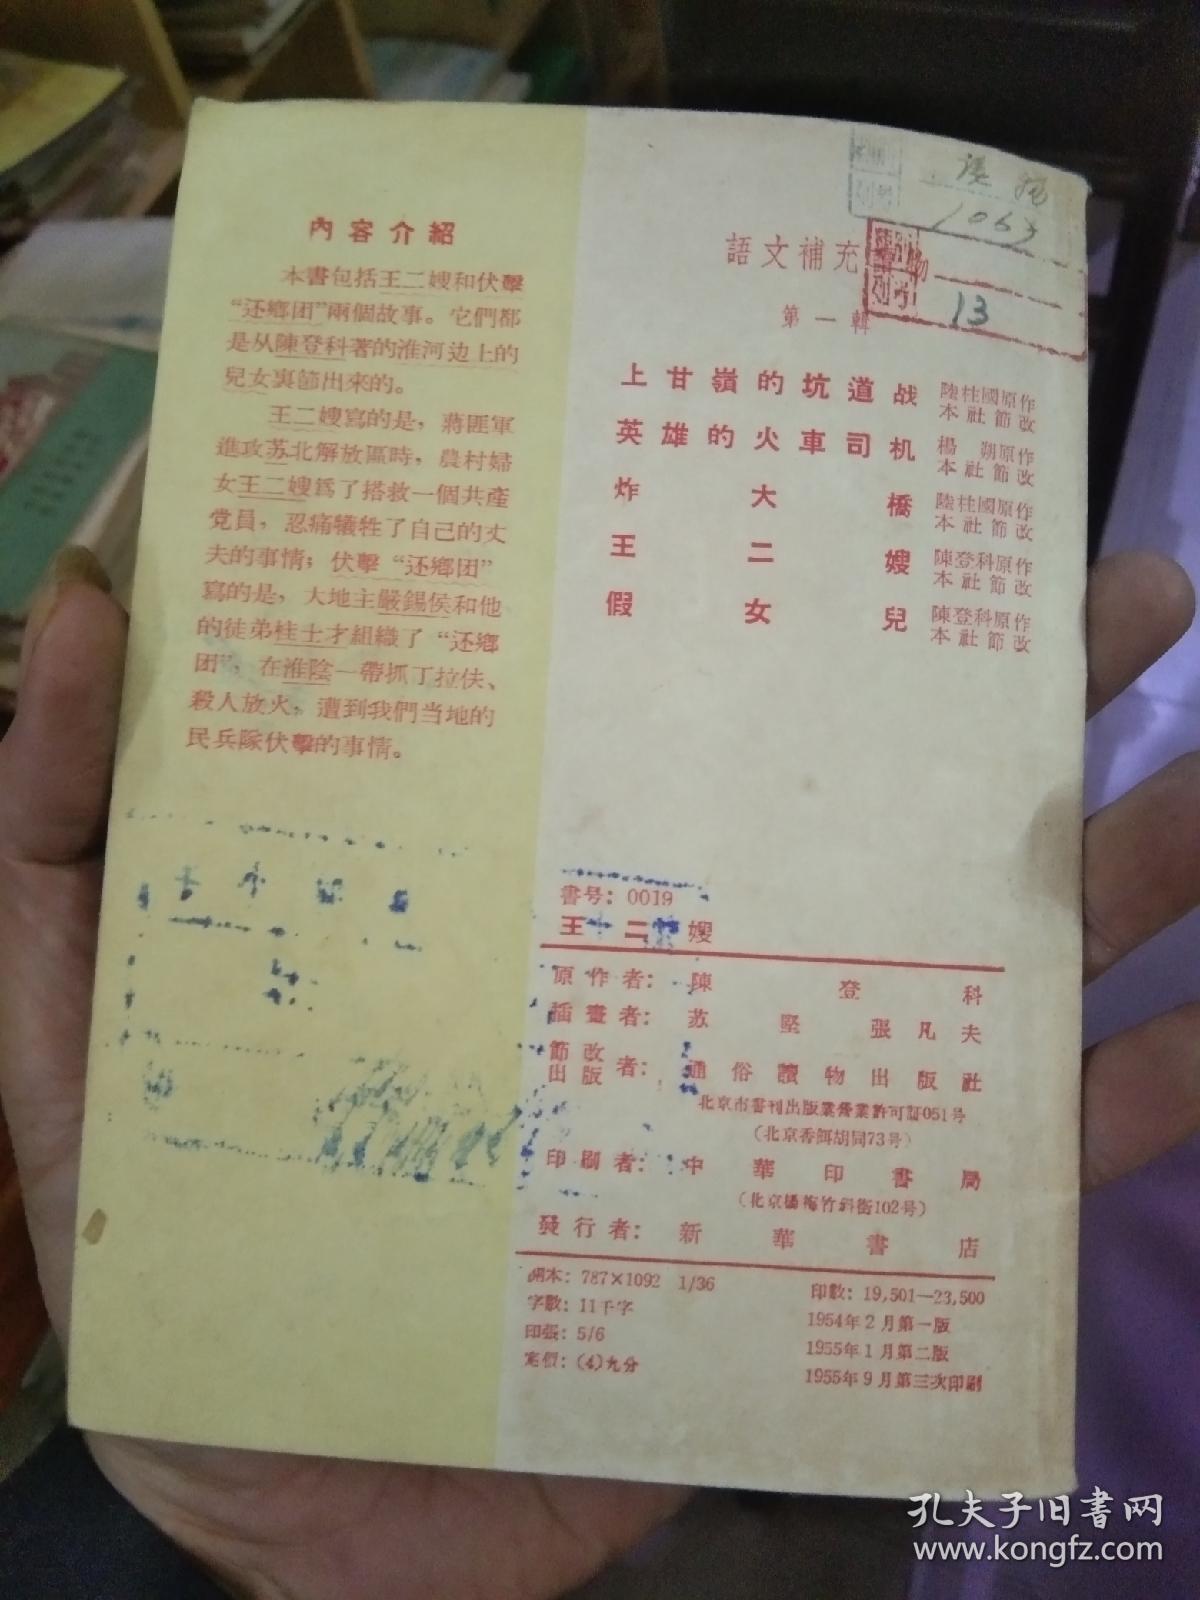 內容介紹
本書包括王二嫂和伏擊
“还鄉团”兩個故事。它們都
是从陳登科著的淮河边上的
兒女裏節出來的。
王二嫂寫的是，蔣匪軍
進攻苏北解放區時，農村婦
女王二嫂爲了搭救一個共產
党員，忍痛犧牲了自己的丈
夫的事情；伏擊“还鄉团”
寫的是，大地主嚴錫侯和他
的徒弟桂士才組織了“还鄉
团”，在淮陰一帶抓丁拉伕、
殺人放火，遭到我們当地的
民兵隊伏擊的事情。
1063
13
語文補充 物
第一輯
上甘嶺的坑道战 陸柱國原作 本社節改
英雄的火車司机 楊朔原作 本社節改
炸大橋 陸柱國原作 本社節改
王二嫂 陳登科原作 本社節改
假女兒 陳登科原作 本社節改
書号：0019
王二嫂
原作者：陳登科
插畫者：苏堅 張凡夫
節改出版者：通俗讀物出版社
北京市書刊出版業營業許可証051号
（北京香餌胡同73号）
印刷者：中華印書局
（北京楊梅竹斜街102号）
發行者：新華書店
開本：787×1092 1/36
字數：11千字
印張：5/6
定價：(4)九分
印數：19,501—23,500
1954年2月第一版
1955年1月第二版
1955年9月第三次印刷
孔夫子旧书网
www.kongfz.com